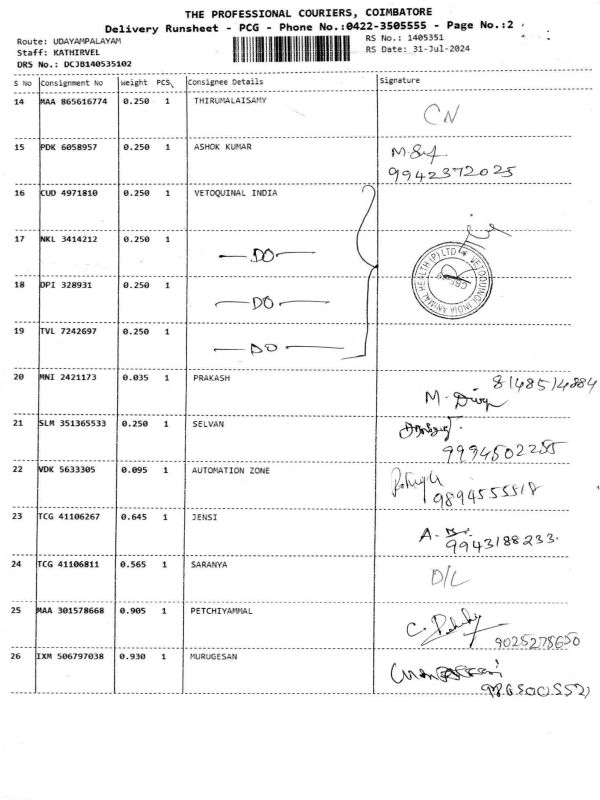 THE PROFESSIONAL COURIERS, COIMBATORE
Delivery Runsheet - PCG - Phone No.:0422-3505555 - Page No.:2
Route: UDAYAMPALAYAM
RS No.: 1405351
Staff: KATHIRVEL
RS Date: 31-Jul-2024
DRS No.: DCJB140535102
S No Consignment No Weight PCS Consignee Details Signature
14 MAA 865616774 0.250 1 THIRUMALAISAMY
CN
15 PDK 6058957 0.250 1 ASHOK KUMAR
9942372025
16 CUD 4971810 0.250 1 VETOQUINAL INDIA
17 NKL 3414212 0.250 1
DO
VETOQUINOL INDIA ANIMAL HEALTH (P) LTD
18 DPI 328931 0.250 1
DO
19 TVL 7242697 0.250 1
DO
20 MNI 2421173 0.035 1 PRAKASH
M. Divya
21 SLM 351365533 0.250 1 SELVAN
9994502255
22 VDK 5633305 0.095 1 AUTOMATION ZONE
9894555518
23 TCG 41106267 0.645 1 JENSI
9943188233
24 TCG 41106811 0.565 1 SARANYA
D/L
25 MAA 301578668 0.905 1 PETCHIYAMMAL
9025278650
26 IXM 506797038 0.930 1 MURUGESAN